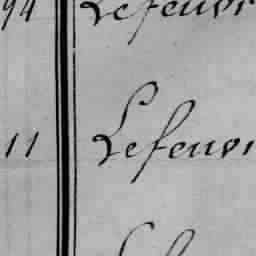 94 Lefeuvr
11 Lefeuvr